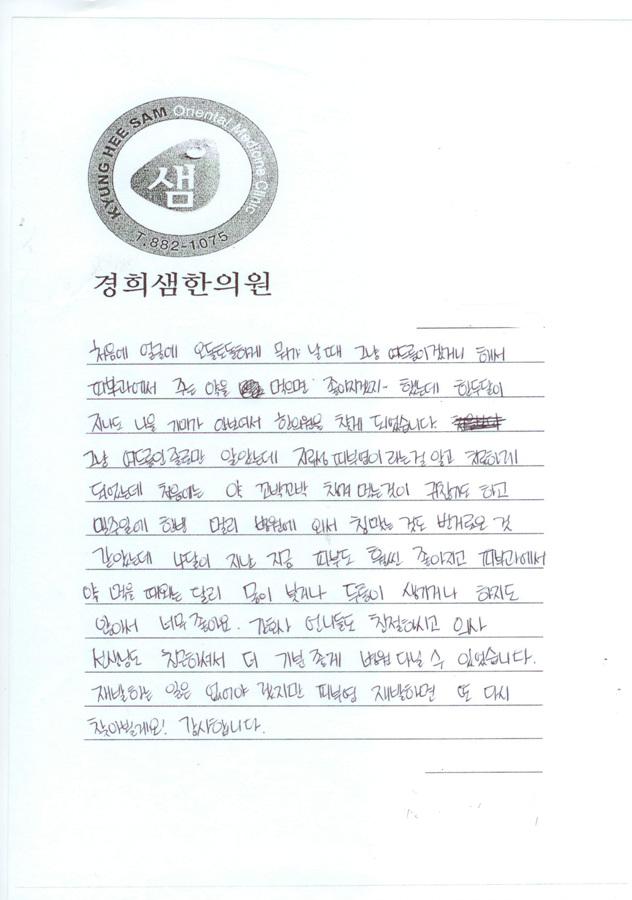 KYUNG HEE SAM Oriental Medicine Clinic
샘
T.882-1075
경희샘한의원
처음에 얼굴에 오돌도돌하게 뭐가 날 때 그냥 여드름이겠거니 해서
피부과에서 주는 약을 먹으면 좋아지겠지- 했는데 한두달이
지나도 나을 기미가 안보여서 한의원을 찾게 되었습니다.
그냥 여드름인 줄로만 알았는데 지루성 피부염이라는걸 알고 치료하게
되었는데 처음에는 약 꼬박꼬박 챙겨 먹는것이 귀찮기도 하고
매주일에 한번 멀리 병원에 와서 침맞는 것도 번거로운 것
같았는데 4달이 지난 지금 피부도 훨씬 좋아지고 피부과에서
약 먹을 때와는 달리 몸이 붓거나 두통이 생기거나 하지도
않아서 너무 좋아요. 간호사 언니들도 친절하시고 의사
선생님도 친근하셔서 더 기분 좋게 병원 다닐 수 있었습니다.
재발하는 일은 없어야 겠지만 피부염 재발하면 또 다시
찾아뵐게요! 감사합니다.